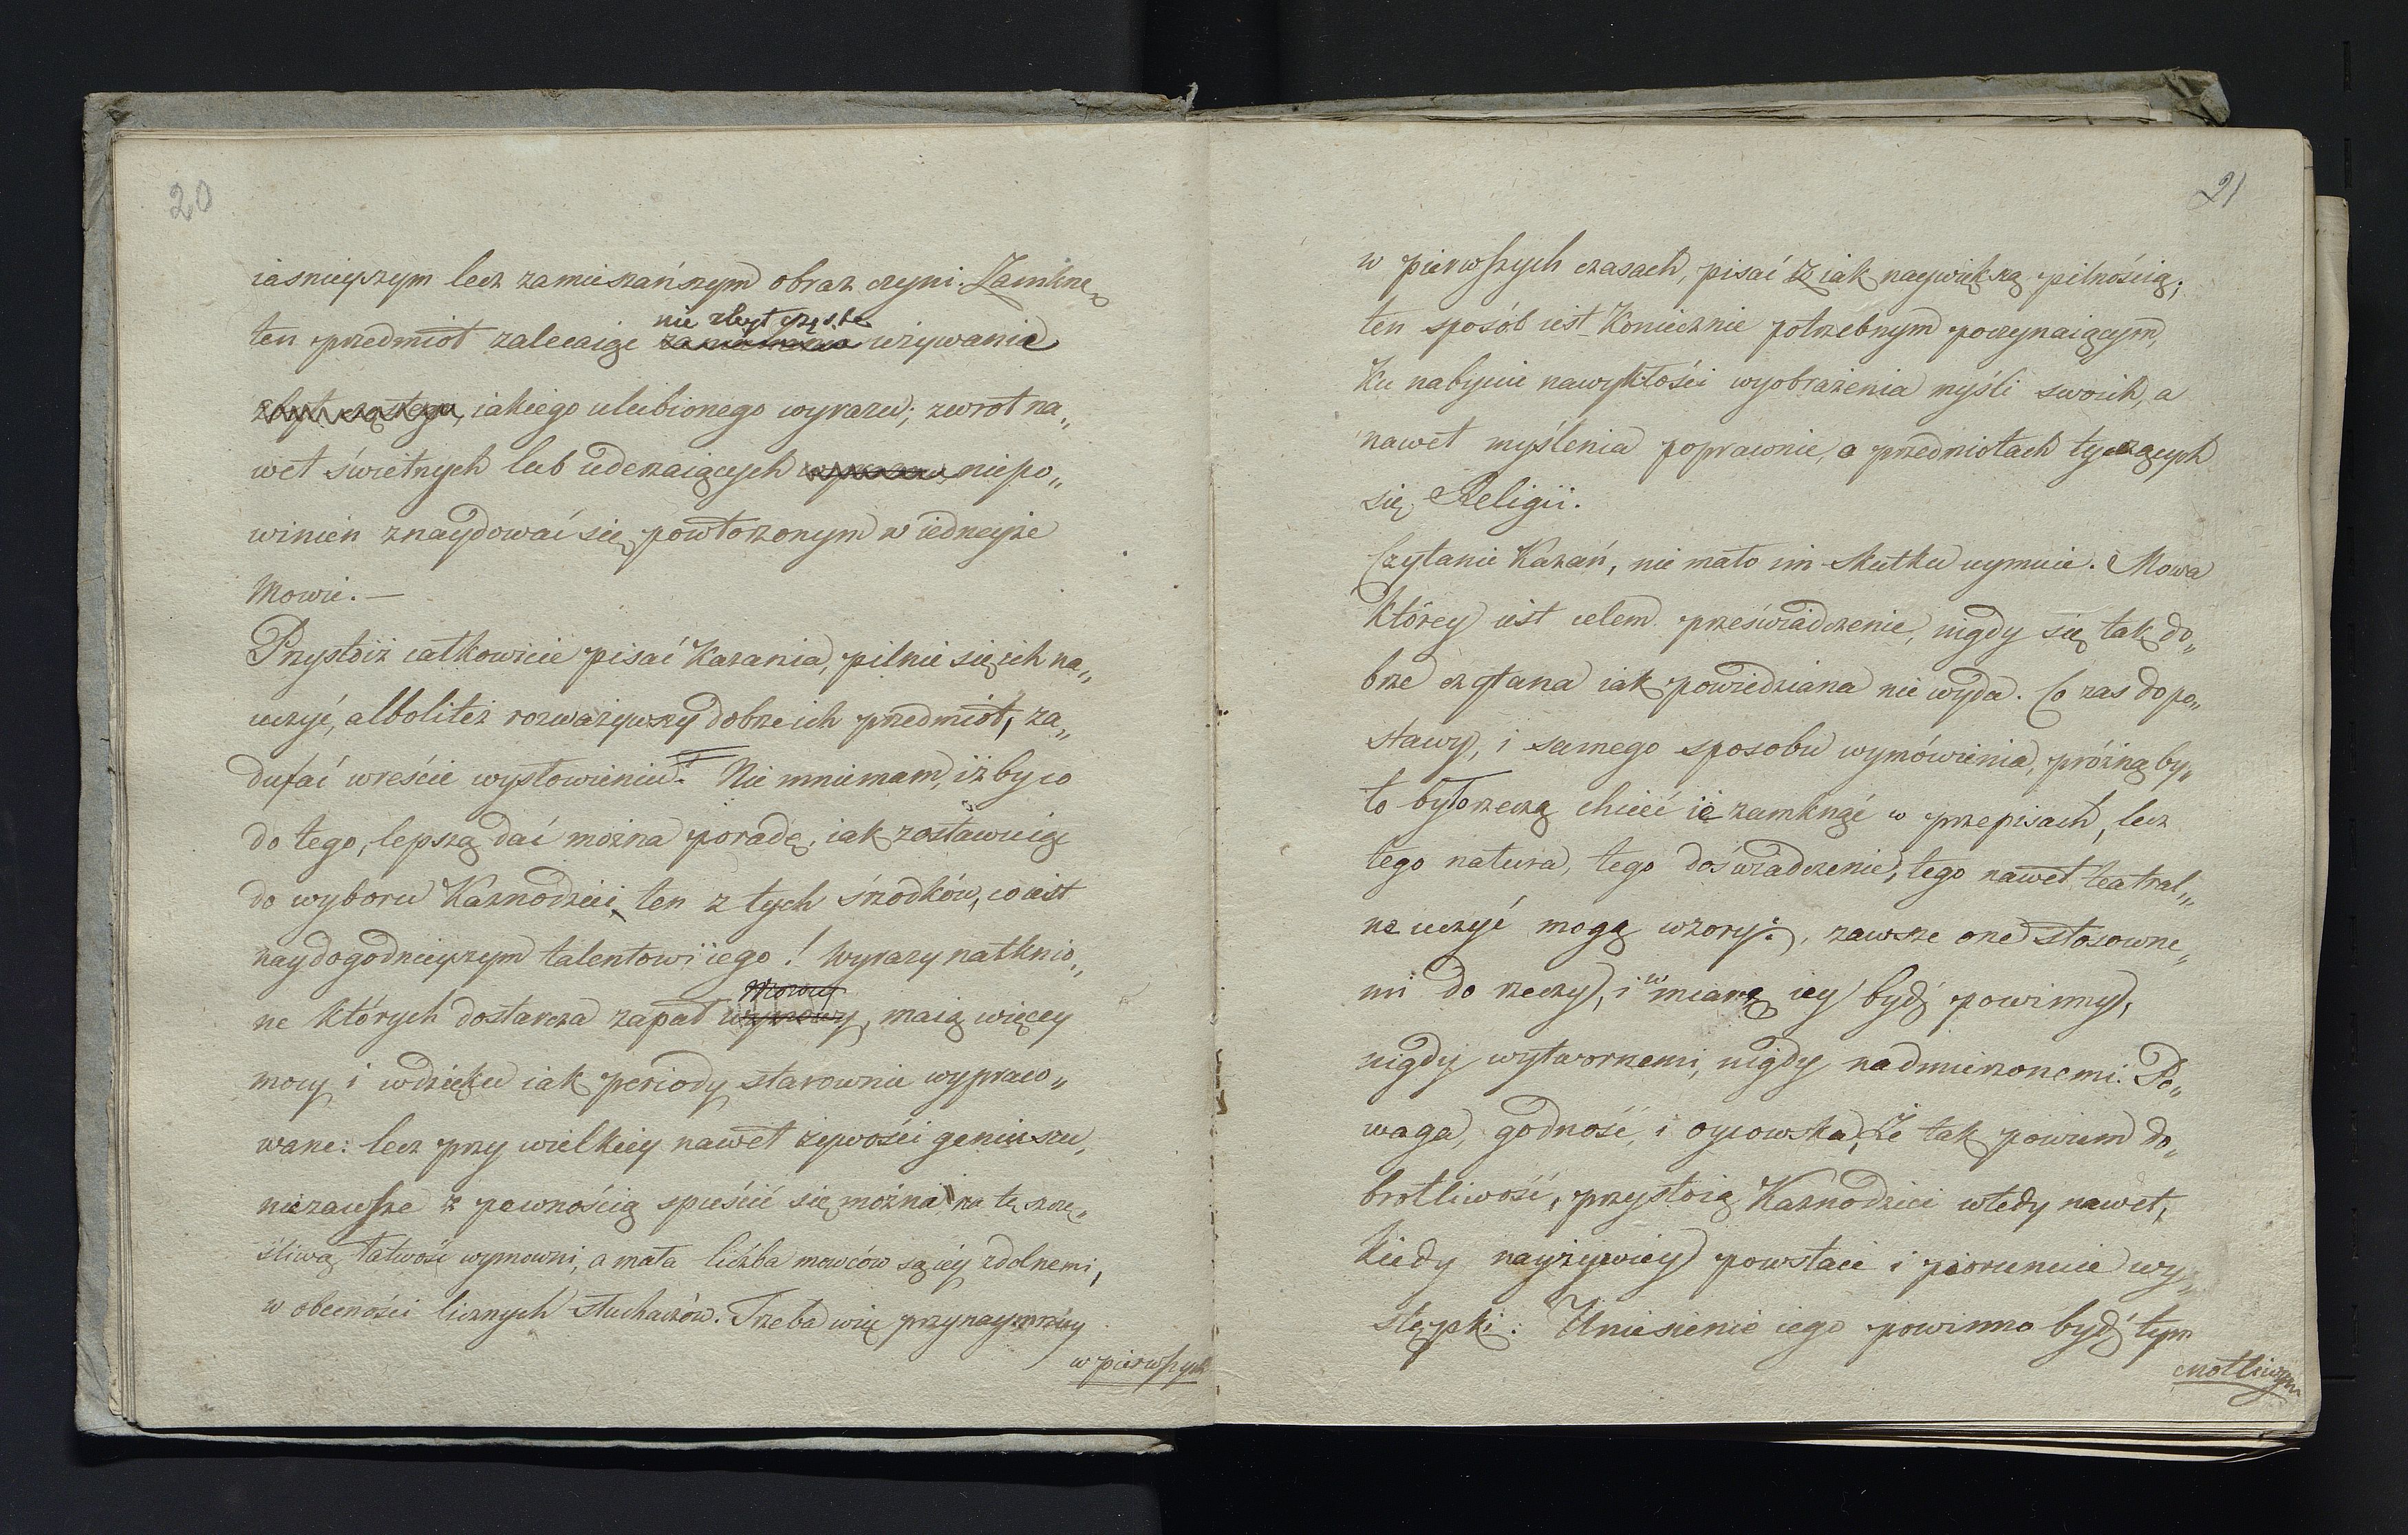 20
iasnieyszym lecz zamieszańszym obraz czyni. Zamknę
nie zbyt częste
ten przedmiot zalecaiąc używanie
zbyt częstego, iakiego ulubionego wyrazu; zwrot na„
wet świetnych lub uderzaiących wyrazów niepo„
winien znaydować się powtorzonym w iedneyże
Mowie. —
Przystoiż całkowicie pisać Kazania, pilnie się ich na„
uczyć, alboliteż rozważywszy dobrze ich przedmiot, za„
dufać wreście wysłowieniu? Nie mniemam, iż by co
do tego, lepszą dać można poradę, iak zostawuiąc
do wyboru Kaznodziei ten z tych śrzodków, co iest
naydogodnieyszym talentowi iego! Wyrazy natknio„
Mowcy
ne których dostarcza zapał wymowy, maią więcey
mocy i wdzięku iak periody starownie wypraco„
wane: lecz przy wielkiey nawet żywości geniuszu,
niezawsze z pewnością spuścić się można na tę szczę„
śliwą łatwość wymowni, a mała liczba mowców są iey zdolnemi,
w obecności licznych słuchaczów. Trzeba więc przynaymniey
w pierwszych
21
w pierwszych czasach, pisać z iak naywiększą pilnością;
ten sposób iest Koniecznie potrzebnym poczynaiącym,
Ku nabyciu nawykłości wyobrażenia myśli swoich, a
nawet myślenia poprawnie, o przedmiotach tyczących
się Religii.
Czytanie Kazań, nie mało im skutku uymuie. Mowa
którey iest celem przeświadczenie, nigdy się tak do„
brze czytana iak powiedziana nie wyda. Co zas do po„
stawy, i samego sposobu wymówienia, próżną by„
to było rzeczą chcieć ie zamknąć w przepisach, lecz
tego natura, tego doświadczenie, tego nawet teatral„
ne uczyć mogą wzory:, zawsze one stosowne„
mi do rzeczy, i w miarę iey bydź powinny,
nigdy wytwornemi, nigdy nadmierzonemi. Po„
waga, godność, i oycowska, że tak powiem do„
brotliwość, przystoią Kaznodziei wtedy nawet,
kiedy nayżywiey powstaie i piorunuie wy„
stępki: Uniesienie iego powinno bydź tym
cnotliwym